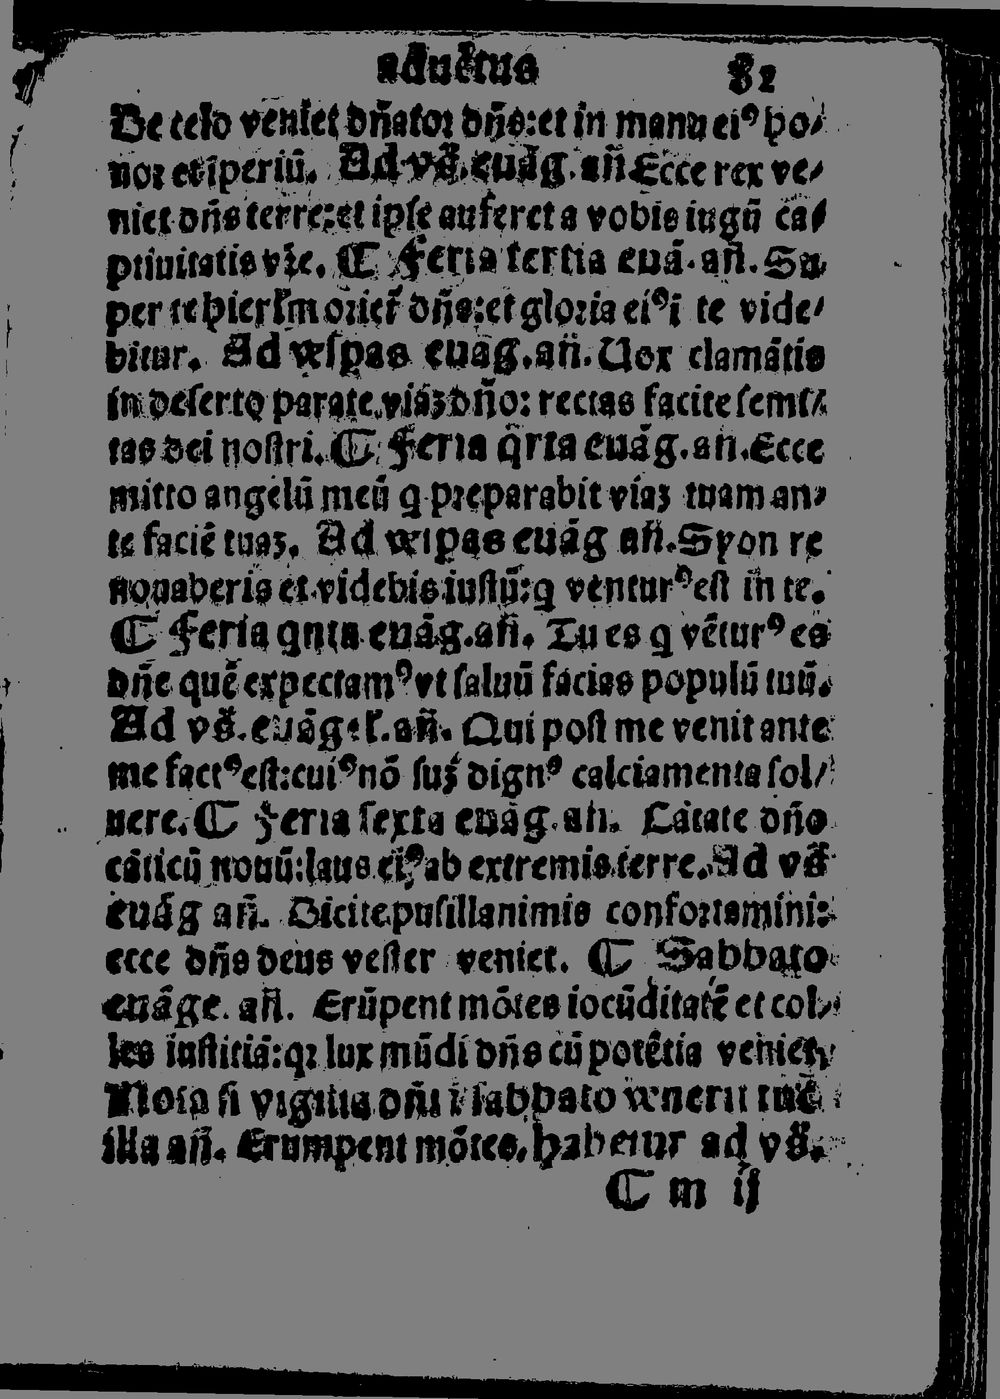 aduētus 82
De celo veniet dñator dñs: et in manu eiꝰ ho/
nor et īperiū. Ad vs̄. euāg. añ Ecce rex ve/
niet dñs terre: et ipse auferet a vobis iugū ca/
ptiuitatis vr̄e. ¶ Feria tertia euā. añ. Su/
per te hierłm oriet̄ dñs: et gloria eiꝰ ī te vide/
bitur. Ad vespas euāg. añ. Uox clamātis
in deserto parate viāꝫ dño: rectas facite semi/
tas dei nostri. ¶ Feria q̄rta euāg. añ. Ecce
mitto angelū meū q preparabit viaꝫ tuam an/
te faciē tuaꝫ. Ad vespas euāg añ. Syon re
nouaberis et videbis iustū: q venturꝰ est in te.
¶ Feria qnta euāg. añ. Tu es q vēturꝰ es
dñe quē expectamꝰ vt saluū facias populū tuū.
Ad vs̄. euāgeł. añ. Qui post me venit ante
me factꝰ est: cuiꝰ nō suꝫ dignꝰ calciamenta sol/
uere. ¶ Feria sexta euāg. añ. Cātate dño
cāticū nouū: laus eiꝰ ab extremis terre. Ad vs̄
euāg añ. Dicite pusillanimis confortamini:
ecce dñs deus vester veniet. ¶ Sabbato
euāge. añ. Erūpent mōtes iocūditatē et col/
les iustitiā: qꝛ lux mūdi dñs cū potētia veniet,
Nota si vigilia dñi ī sabbato venerit tūc
illa añ. Erumpent mōtes, habetur ad vs̄.
¶ m ij